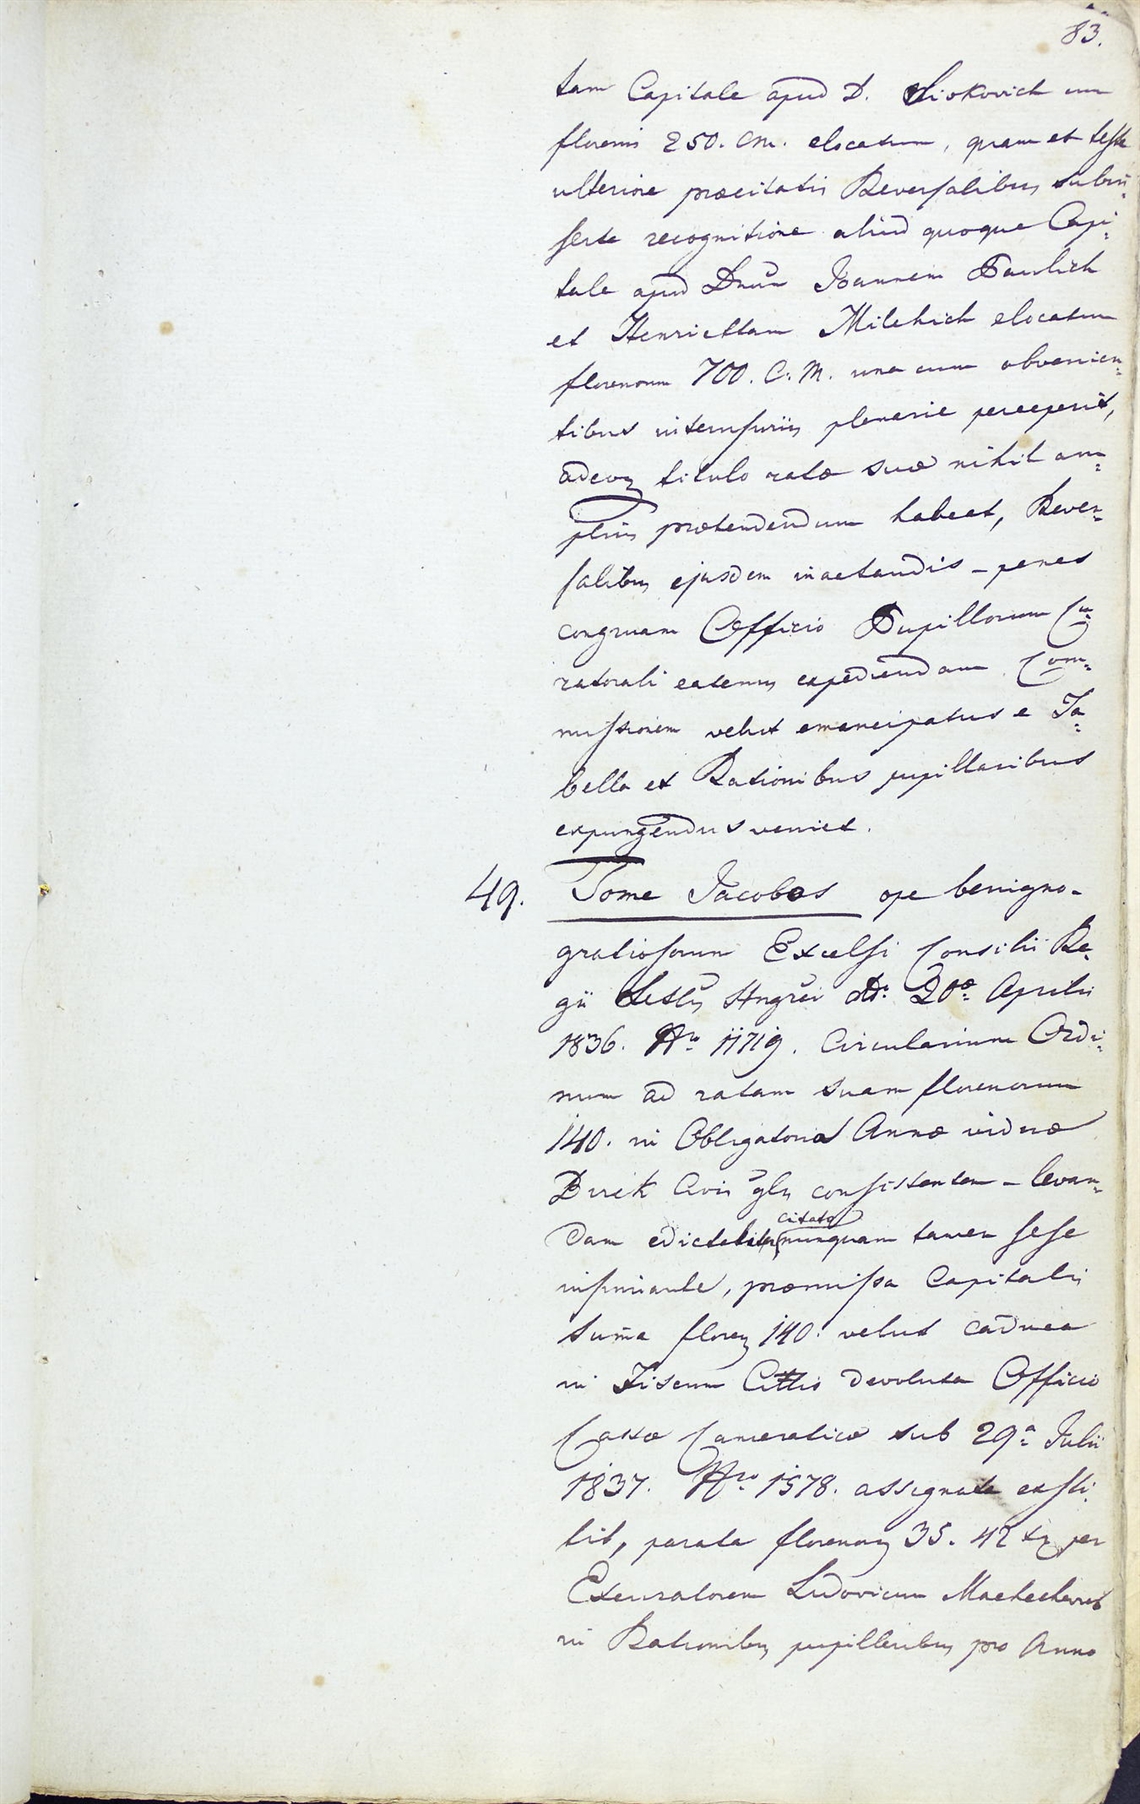 83.
tam Capitale apud D. Siskovich cum
florenis 250. CM. elocatum, quam et teste
ulteriore praecitatis Reversalibus subin=
serta recognitione aliud quoque Capi=
tale apud Dnum Joannem Paulich
et Henriettam Milchich elocatum
florenorum 700. C. M. una cum obvenien=
tibus interusuriis plenarie perceperit,
adeoq titulo ratae suae nihil am=
plius praetendendum habeat, Rever=
salibus ejusdem inactandis – penes
congruam Officio Pupillorum Cu=
ratorali eatenus expediendam Com=
missionem velut emancipatus e Ta=
bella et Rationibus pupillaribus
expungendus veniet.
49. Tome Jacobos ope benigno-
gratiosorum Excelsi Consilii Re=
gii Lttlis Hngrci dto 20ae Aprilis
1836. Nro 11719. Circularium Ordi=
num ad ratam suam florenorum
140. in Obligatoria Annae viduae
Durik Civis glis consistentem – levan=
dam edictaliter citato nunquam tamen sese
insinuante, praemissa Capitalis
suma floren 140. velut caduca
in Fiscum Cittis devoluta Officio
Cassae Cameraticae sub 29a Julii
1837. Nro 1578. assignata exsti=
tit, parata florenor 35. 42 xr per
Excuratorem Ludovicum
in Rationibus pupillaribus pro Anno